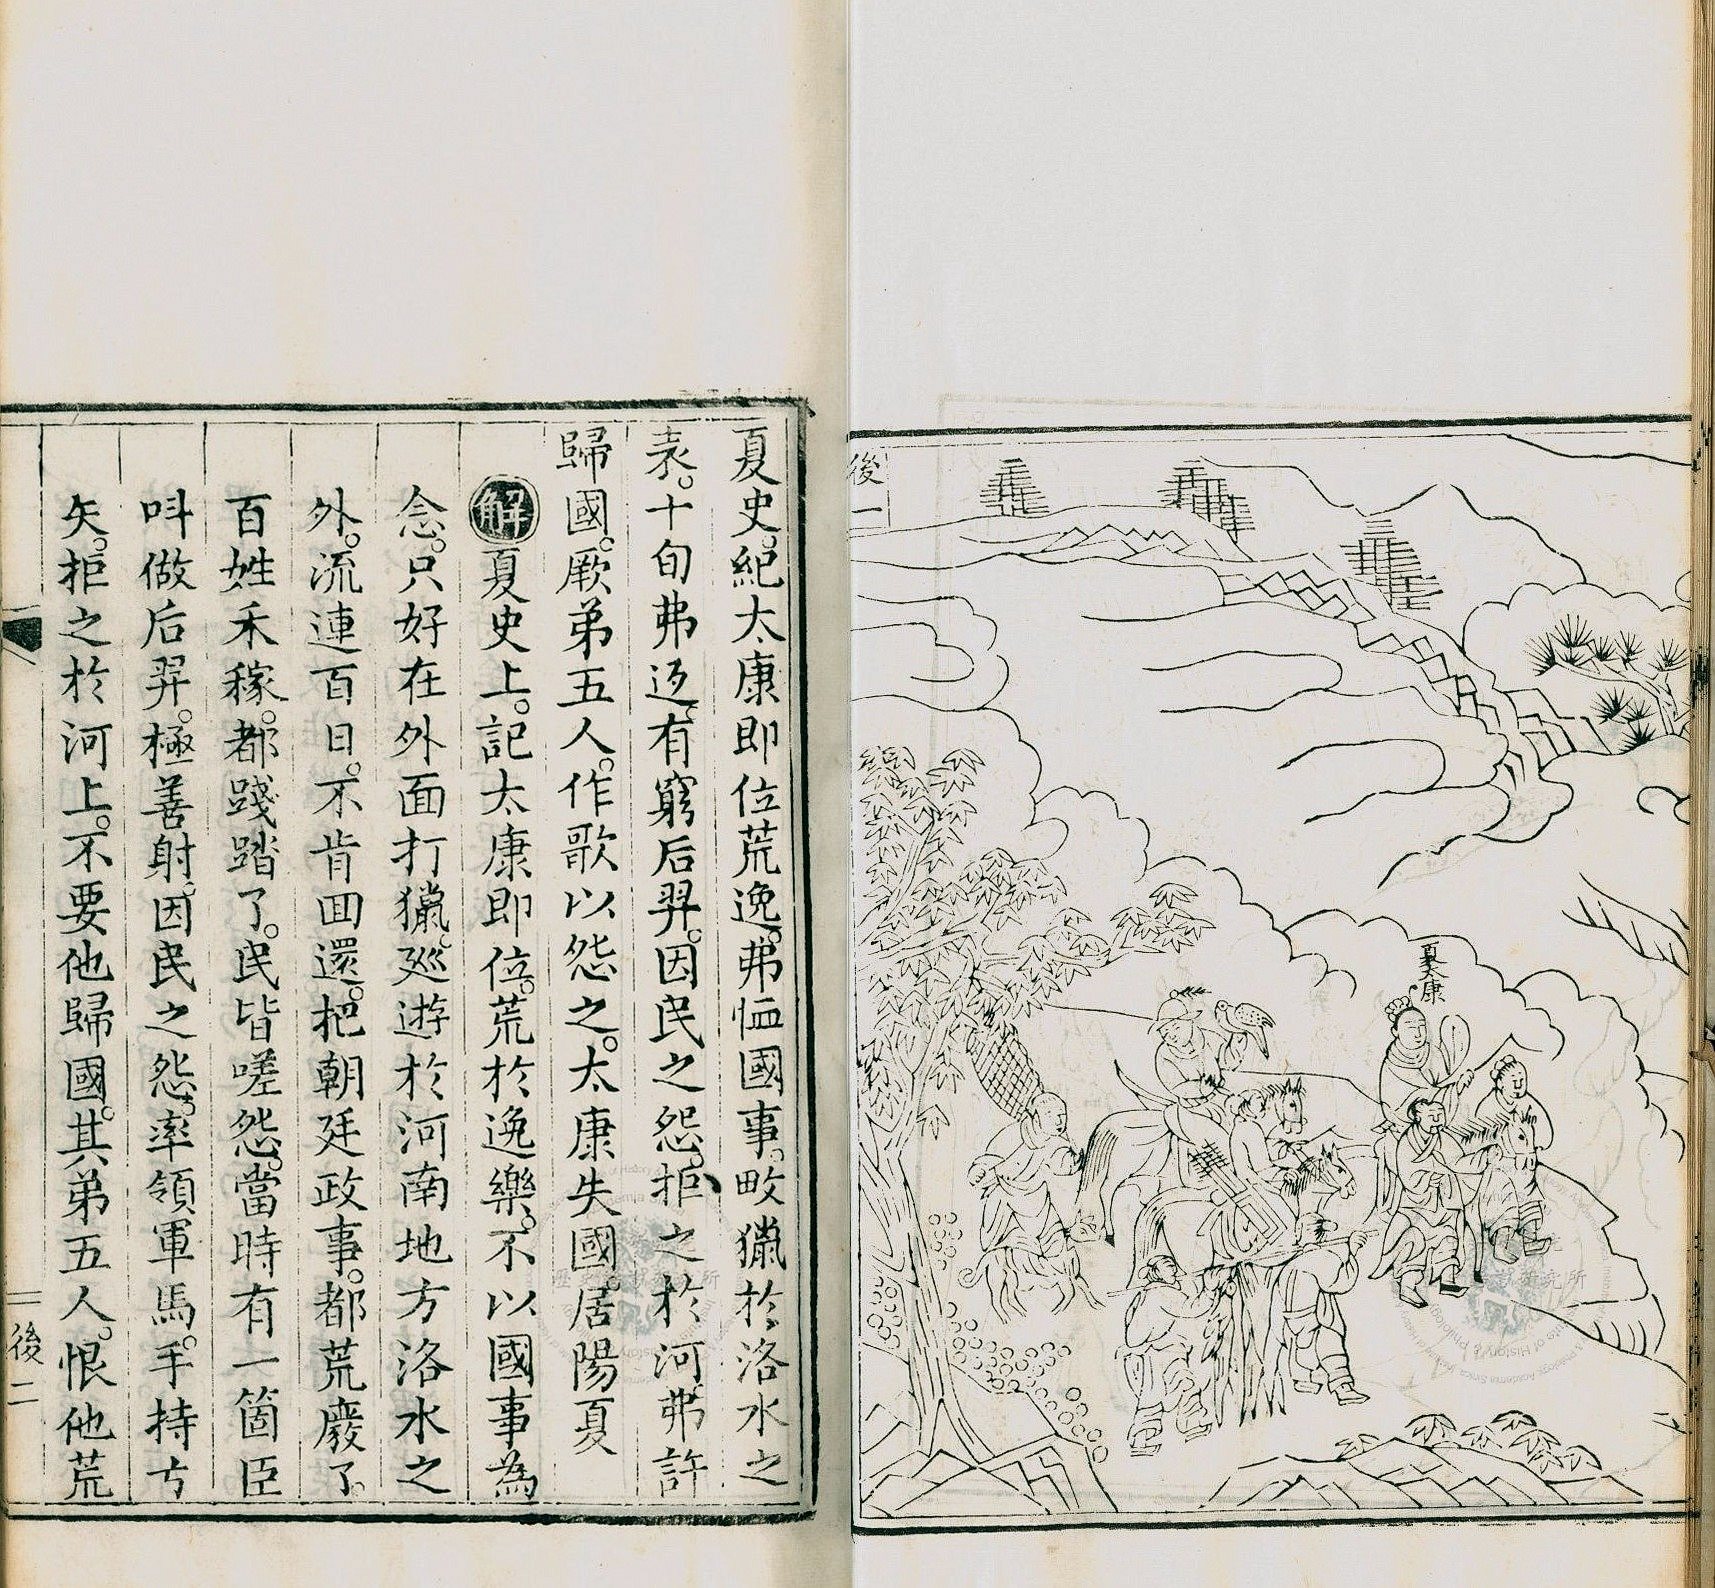 後一
夏太康
夏史。紀太康即位荒逸。弗恤國事。畋獵於洛水之
表。十旬弗返。有窮后羿。因民之怨。拒之於河。弗許
歸國。厥弟五人。作歌以怨之。太康失國。居陽夏
解夏史上。記太康即位。荒於逸樂。不以國事為
念。只好在外面打獵。廵遊於河南地方洛水之
外。流連百日。不肯囬還。把朝廷政事。都荒廢了。
百姓禾稼。都踐踏了。民皆嗟怨。當時有一箇臣
呌做后羿。極善射。因民之怨。率領軍馬。手持方
矢。拒之於河上。不要他歸國。其弟五人。恨他荒
後二